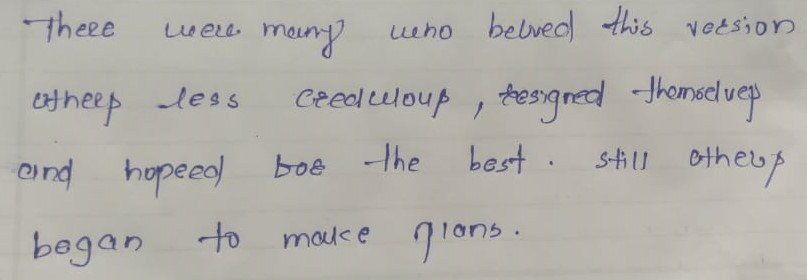 There were many who belved this version
others less creduloup, resigned themselves
and hopeed for the best. still others
began to make plans.